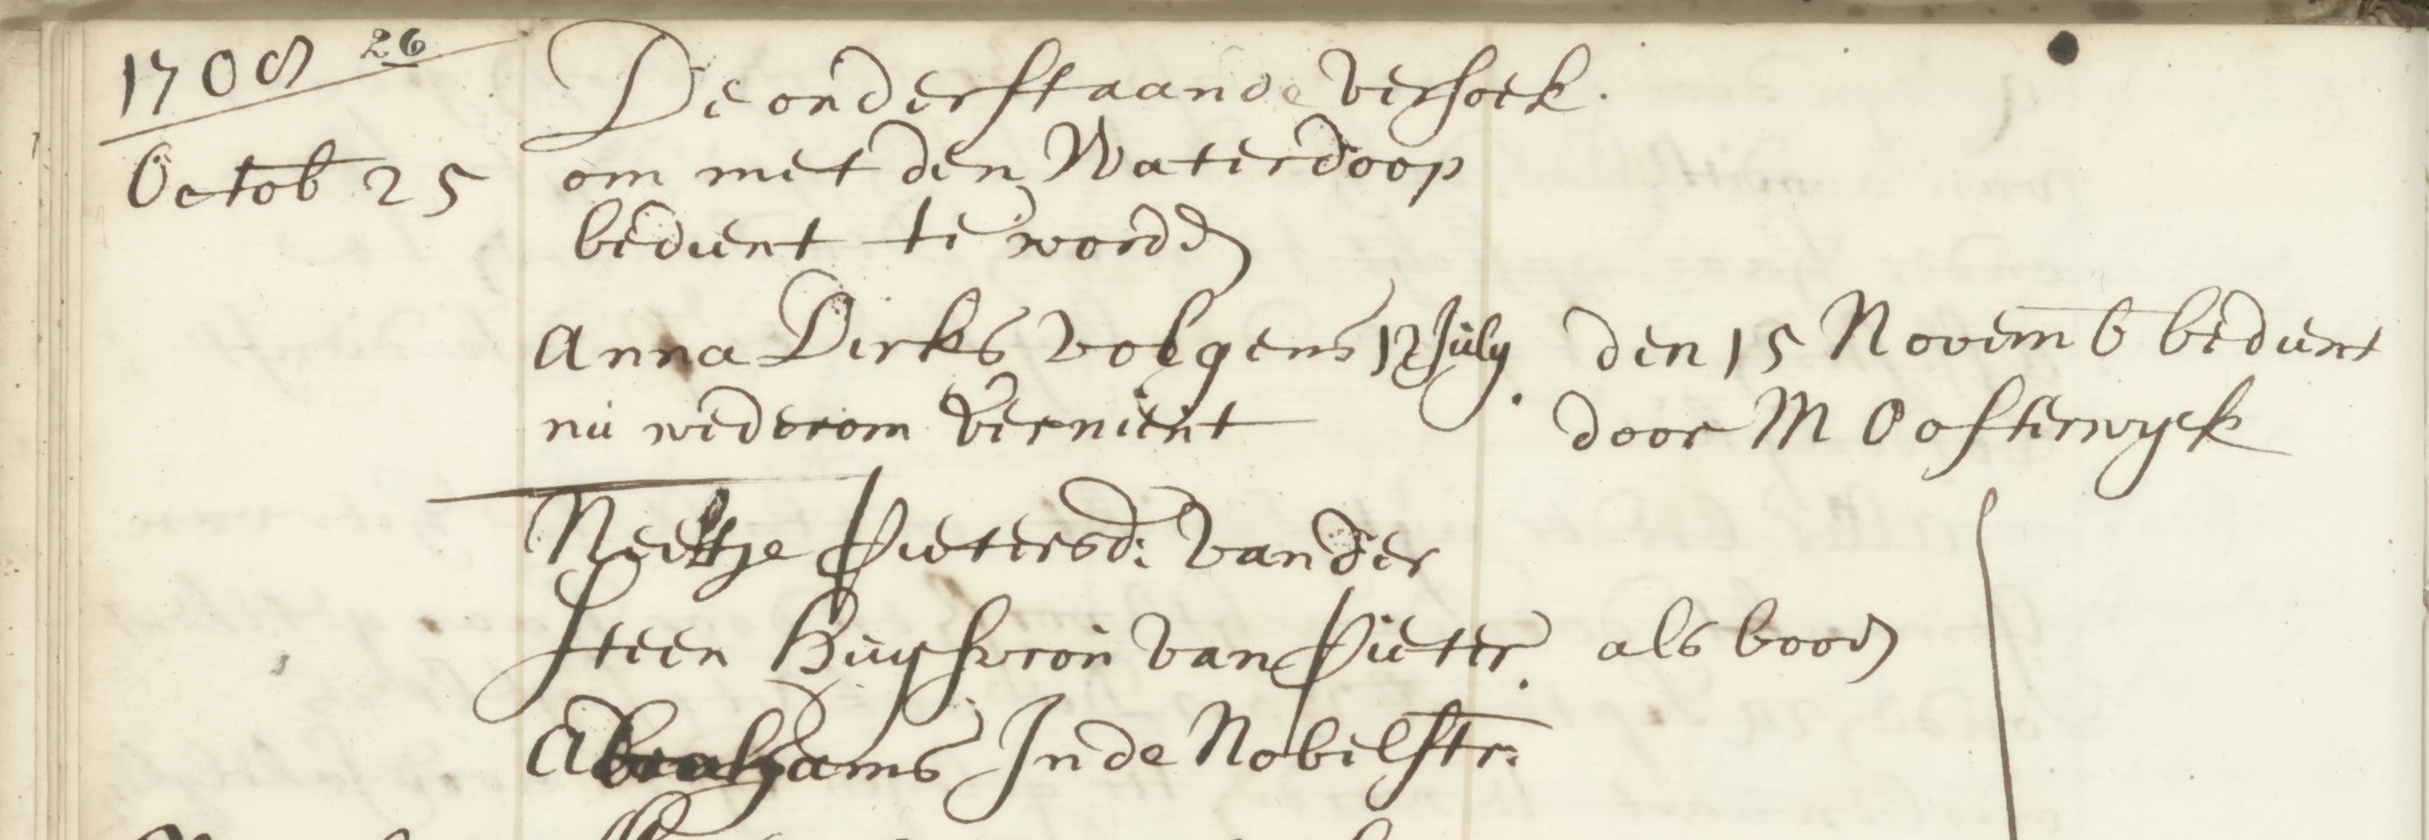 1708 26
De onderstaande versoek.
October 25 om met den Waterdoop
bedient te worden
Anna Dirks volgens 12 July. den 15 Novemb bedient
nu wederom vernieut door M Oosterwyck
Neeltje Pietersd: vander
Steen Huysvrou van Pieter. als boven
Abrahams Inde Nobelstr: